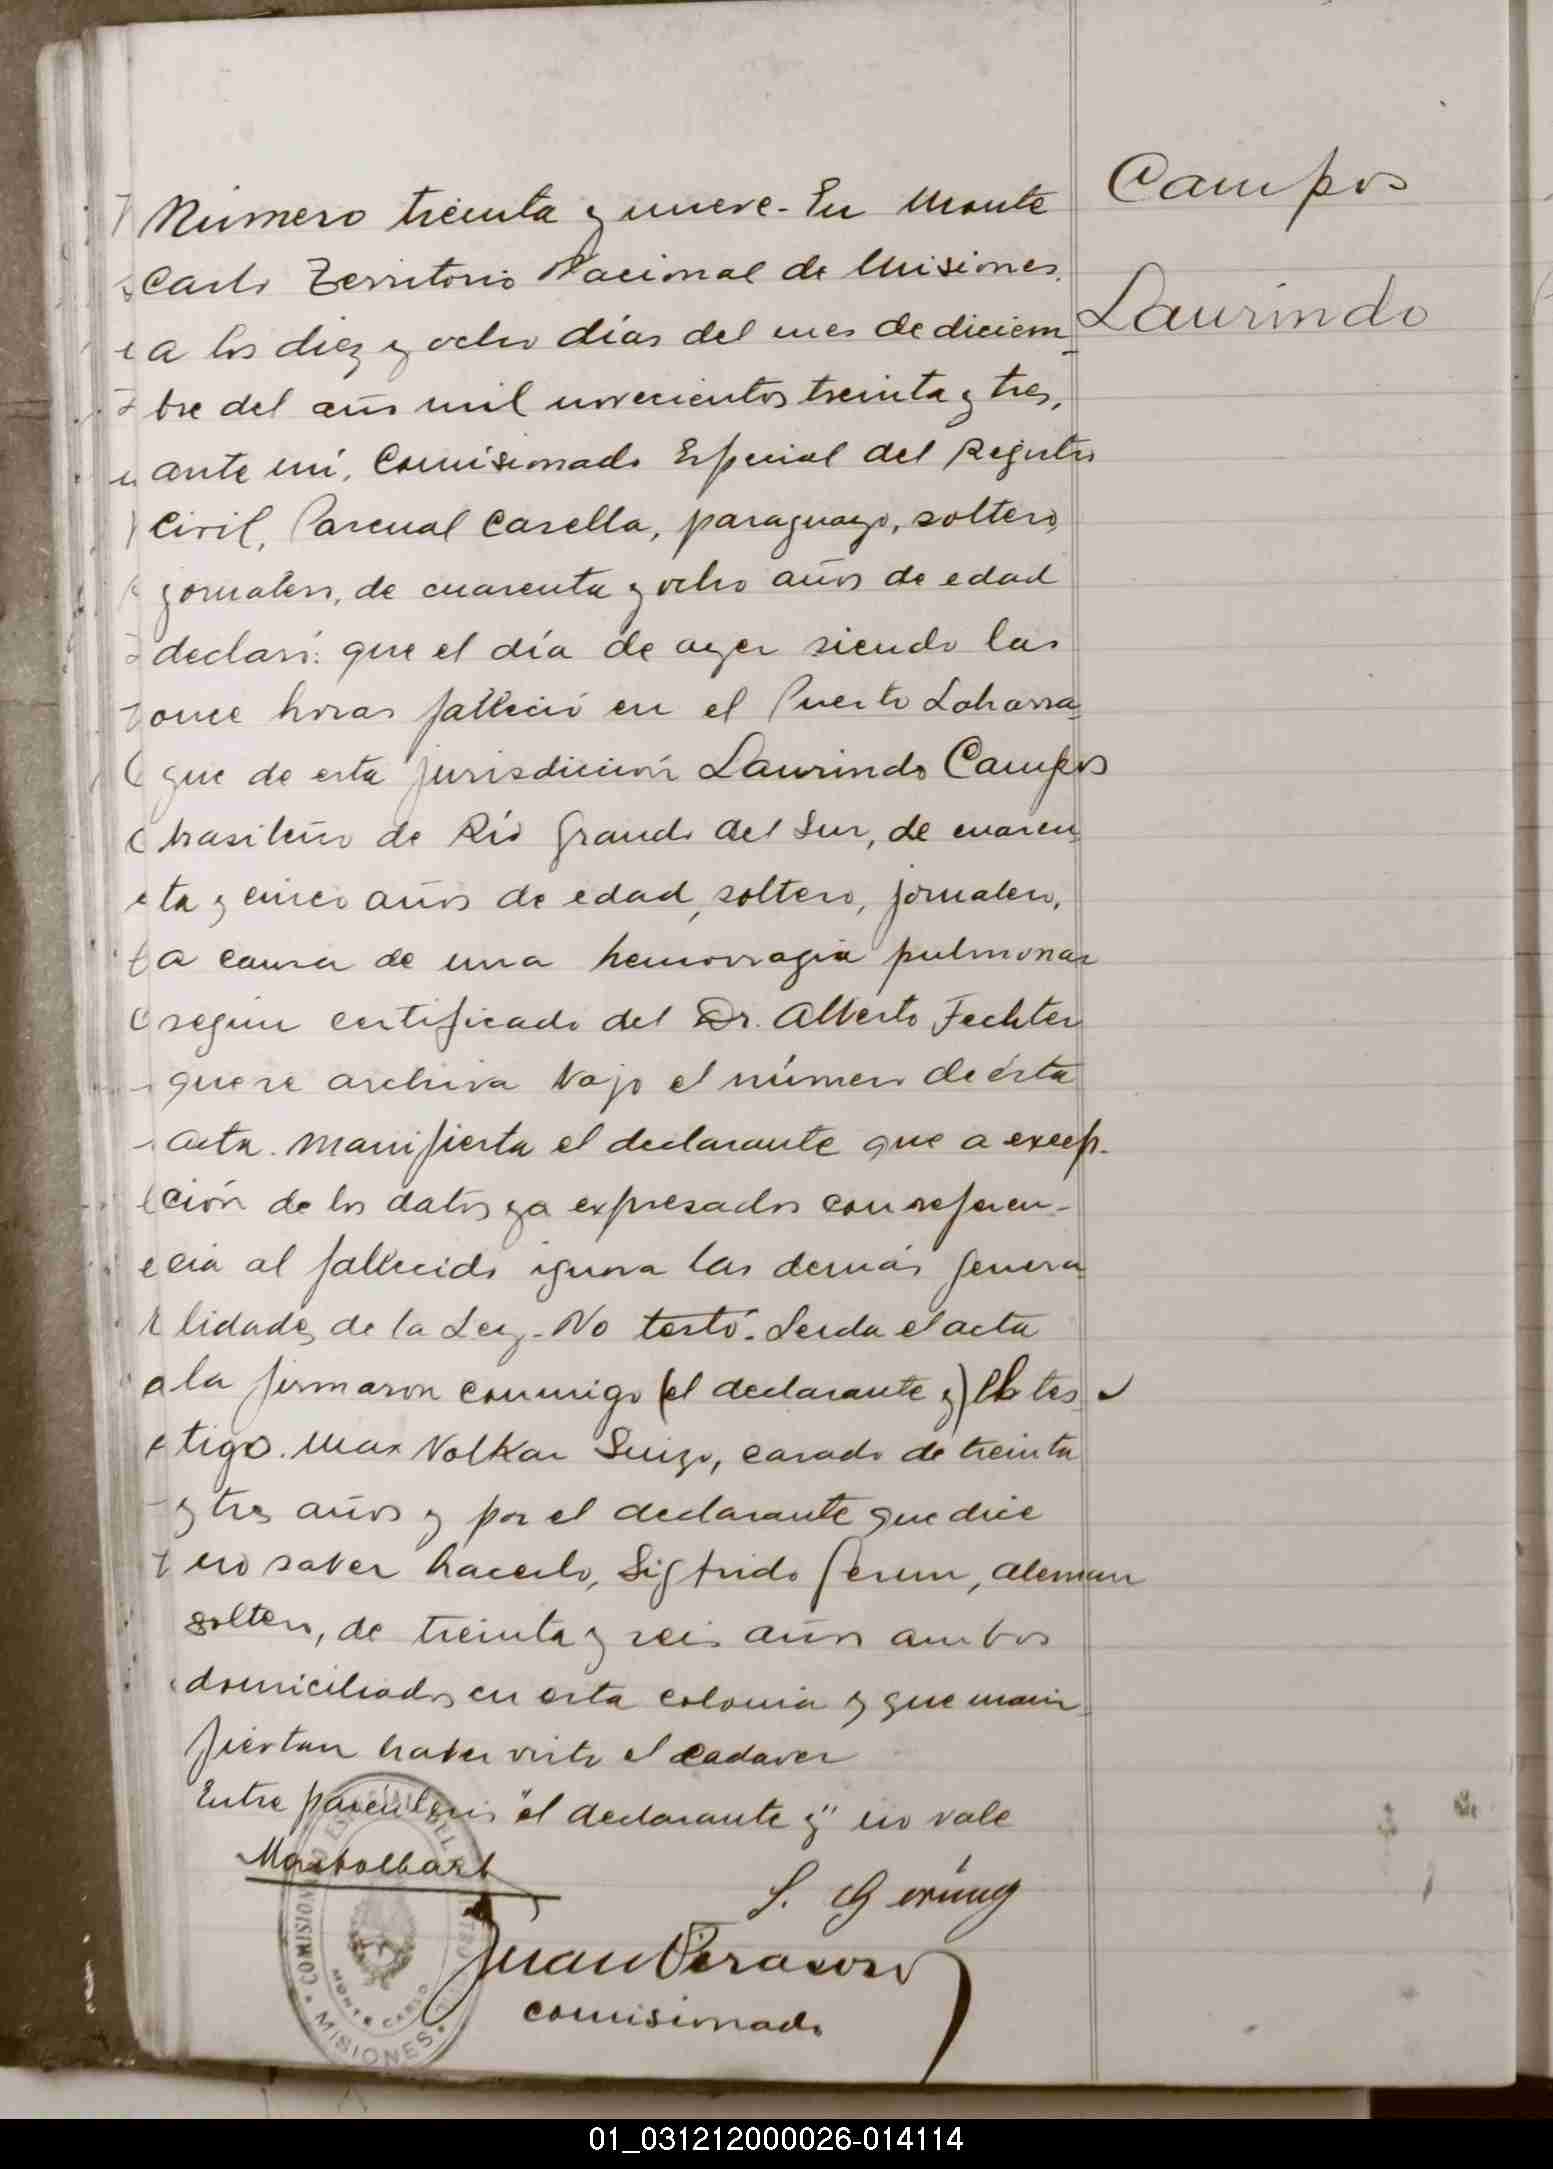 Campos
Laurindo
Número treinta y nueve.- En Monte
Carlo Territorio Nacional de Misiones
a los diez y ocho días del mes de diciem-
bre del año mil novecientos treinta y tres,
ante mí, Comisionado Especial del Registro
Civil, Pascual Casella, paraguayo, soltero,
jornalero, de cuarenta y ocho años de edad
declaró: que el día de ayer siendo las
once horas falleció en el Puerto Laharra-
gue de esta jurisdición Laurindo Campos
brasileño de Río Grande del Sur, de cuaren-
ta y cinco años de edad, soltero, jornalero,
a causa de una hemorragia pulmonar
según certificado del Dr. Alberto Fechter
que se archiva bajo el número de ésta
acta. Manifiesta el declarante que a excep-
ción de los datos ya expresados con referen-
cia al fallecido ignora las demás genera-
lidades de la Ley.- No testó.- Leída el acta
la firmaron conmigo (el declarante y) el tes-
tigo. Max Volkar Suizo, casado de treinta
y tres años y por el declarante que dice
no saber hacerlo, Sigfrido Gerun, aleman
soltero, de treinta y seis años ambos
domiciliados en esta colonia y que mani-
fiestan haber visto el cadaver
Entre parentesis "el declarante y" no vale
S. Gerüng
Juan Perasoro
comisionado
COMISIONADO ESPECIAL DEL
MONTE CARLO
MISIONES
01_031212000026-014114